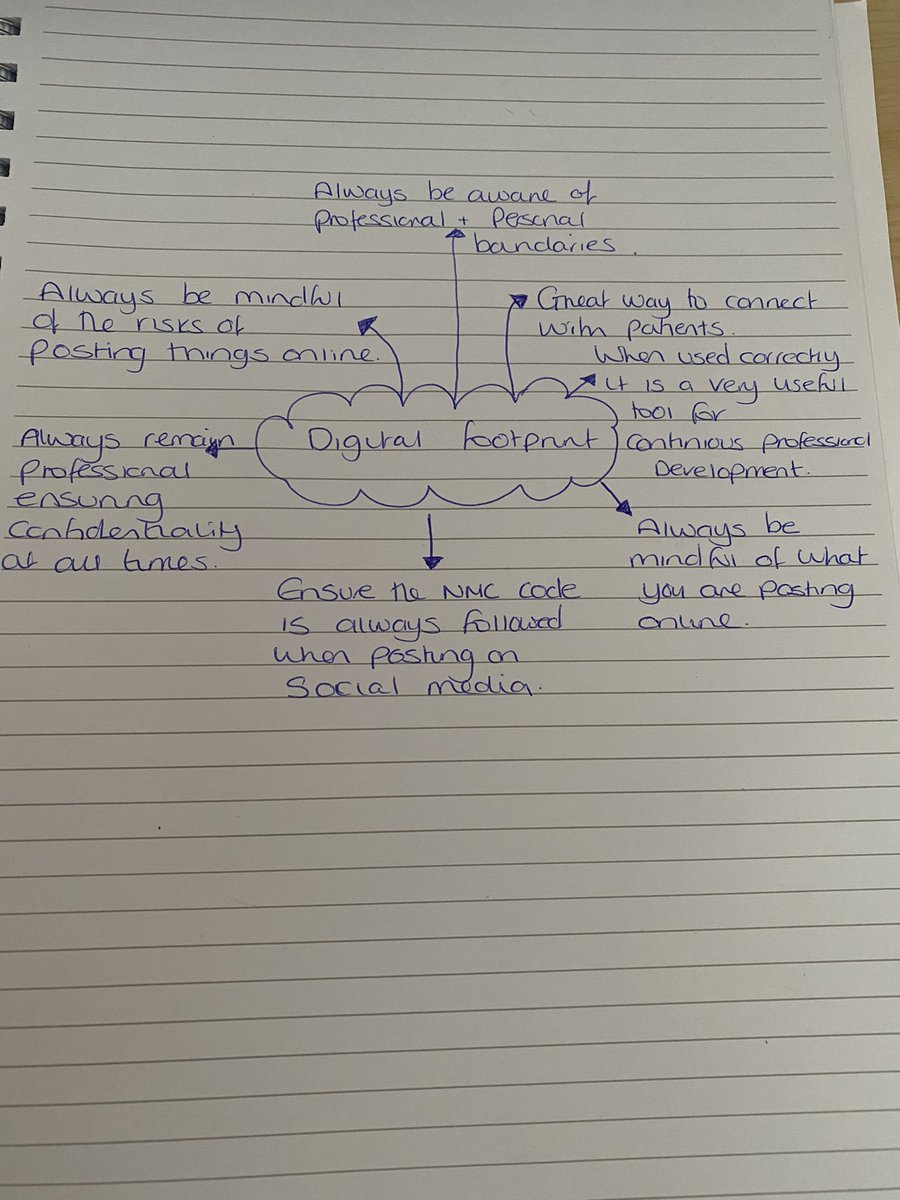 Always be aware of
professional + Pesonal
bandaries.
Always be mindful
of the risks of
posting things online.
Great way to connect
with patients.
When used correctly
it is a very useful
tool for
continious professional
Development.
Digital footprint
Always remain
professional
ensuring
confidentiality
at all times.
Always be
mindful of what
you are posting
online.
Ensue the NMC code
is always followed
when posting on
Social media.